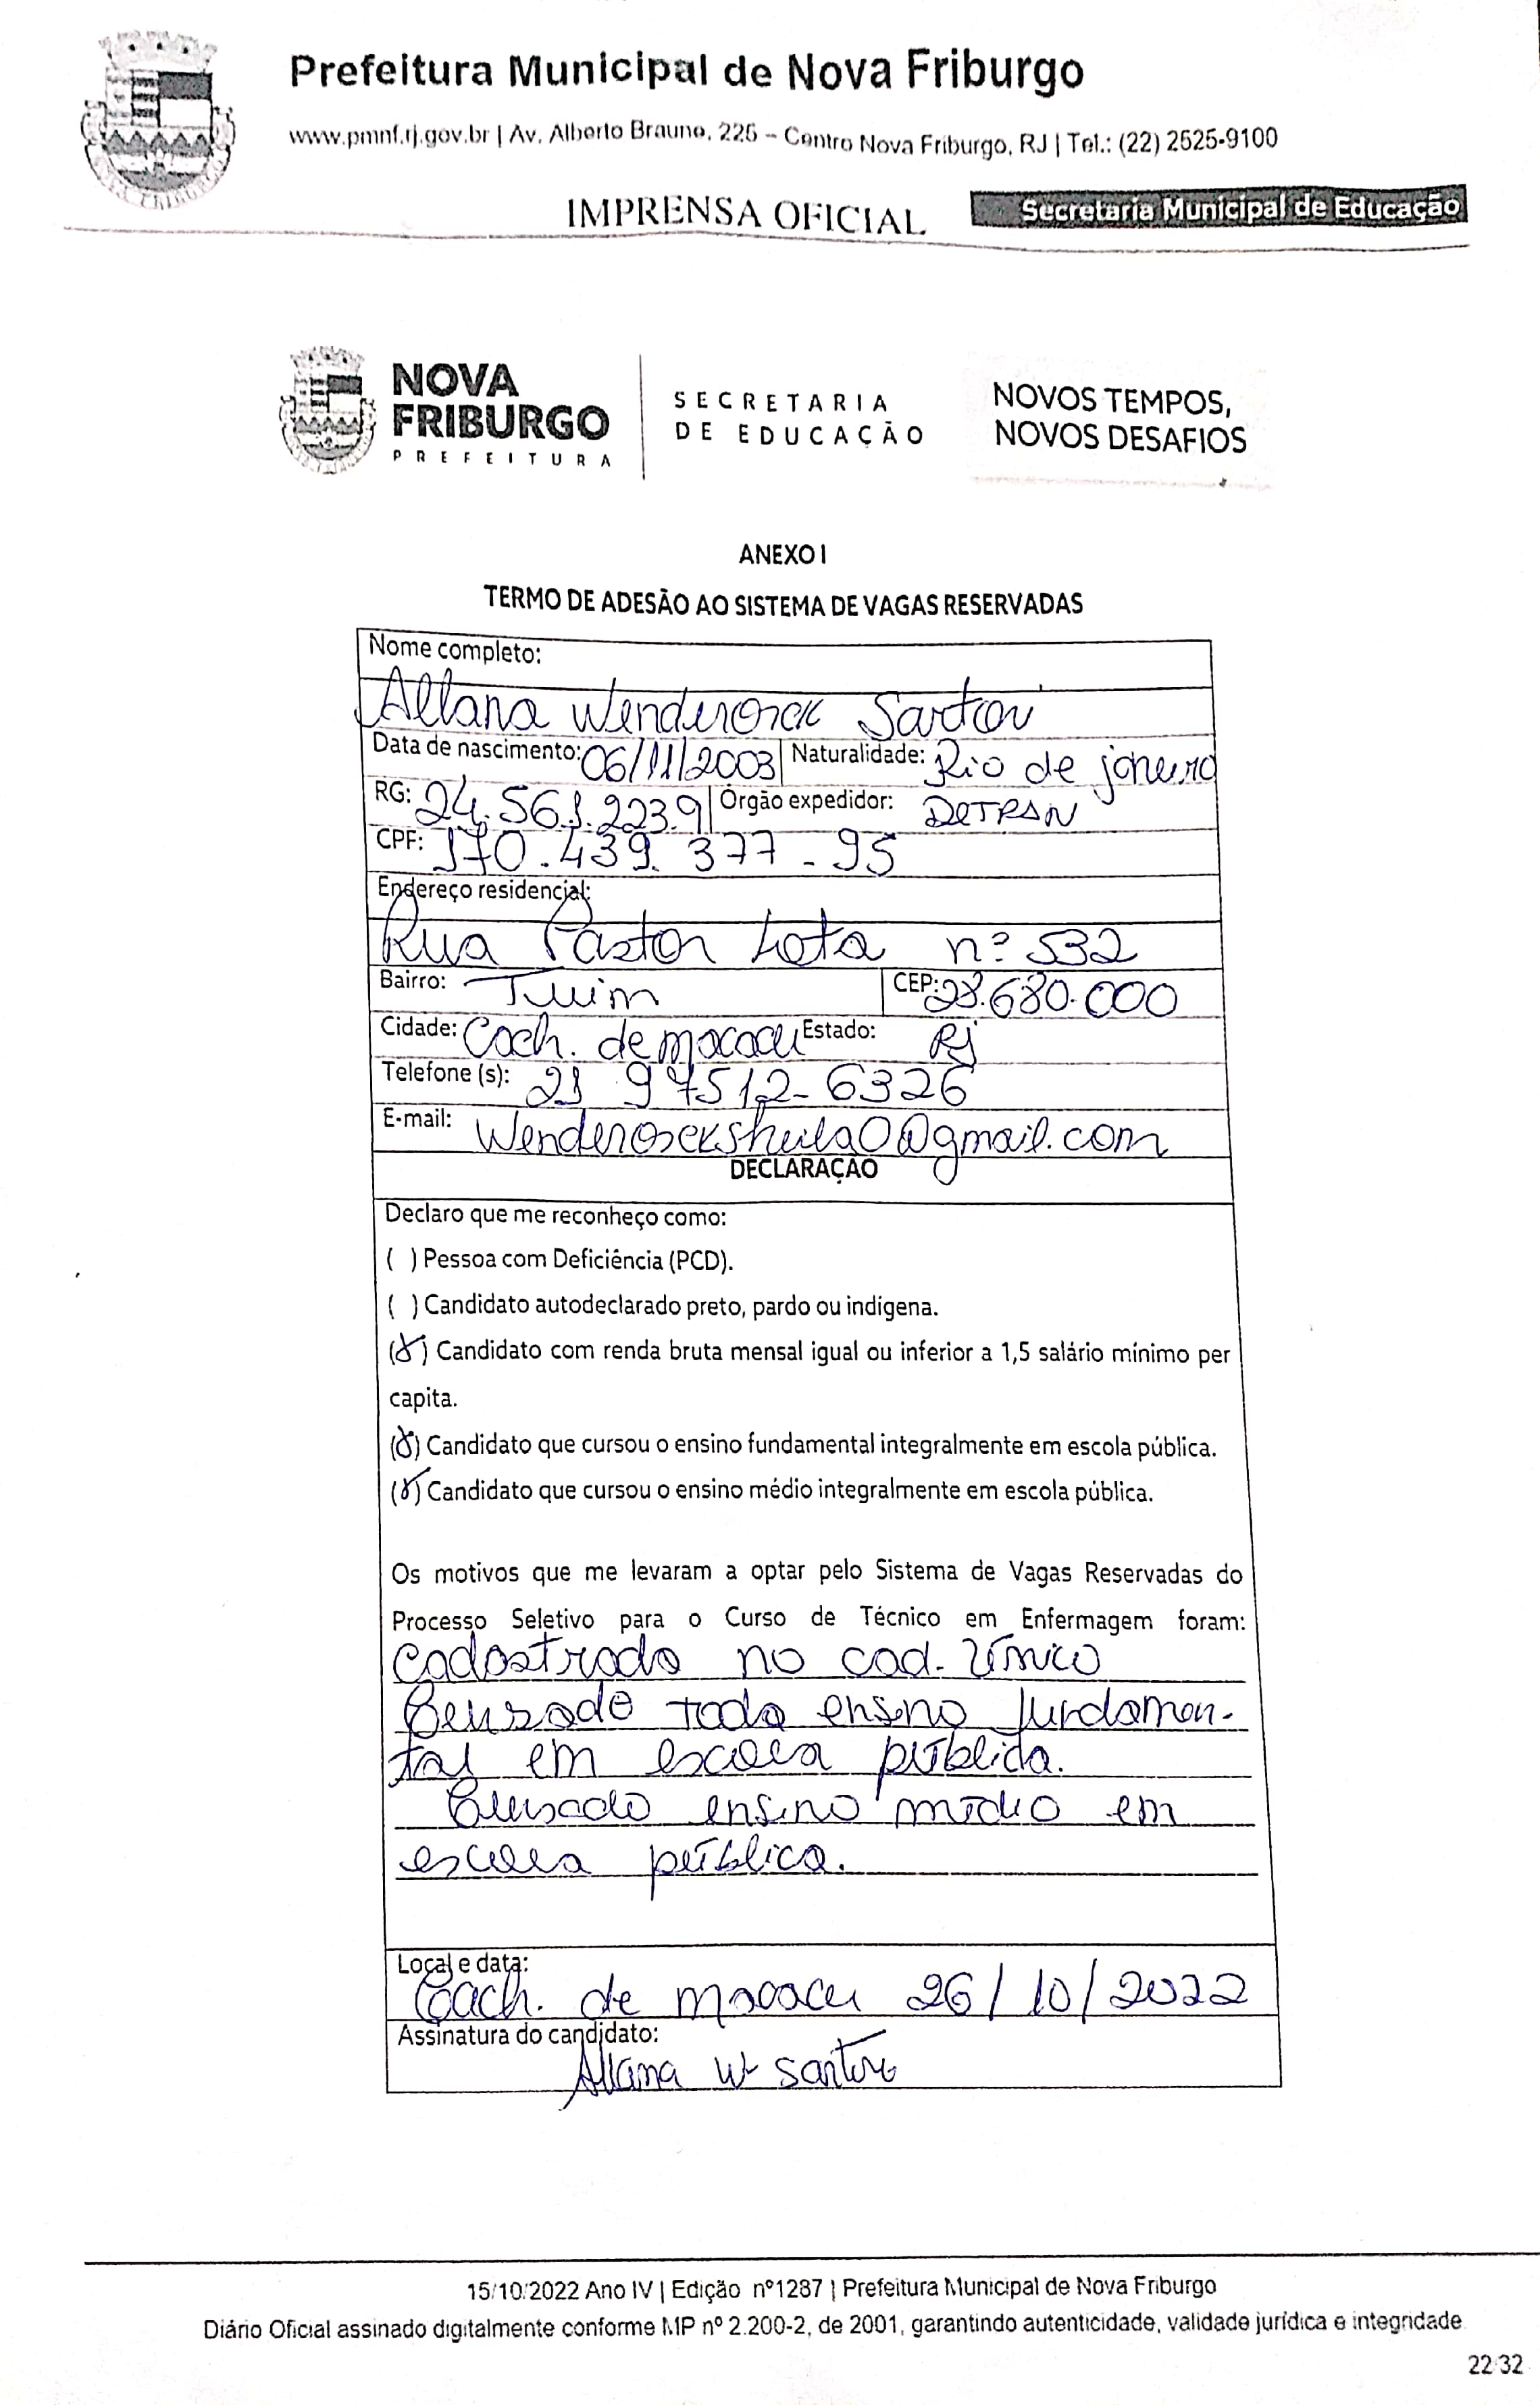 Prefeitura Municipal de Nova Friburgo
www.pmnf.rj.gov.br | Av. Alberto Braune, 225 – Centro Nova Friburgo, RJ | Tel.: (22) 2525-9100
IMPRENSA OFICIAL
Secretaria Municipal de Educação
NOVA
FRIBURGO
PREFEITURA
SECRETARIA
DE EDUCAÇÃO
NOVOS TEMPOS,
NOVOS DESAFIOS
ANEXO I
TERMO DE ADESÃO AO SISTEMA DE VAGAS RESERVADAS
Nome completo:
Allana Wenderosck Sartori
Data de nascimento: 06/11/2003 Naturalidade: Rio de janeiro
RG: 24.561.223.9 Órgão expedidor: DETRAN
CPF: 170.439.377-95
Endereço residencial:
Rua Pastor Lota nº 532
Bairro: CEP: 28.680.000
Cidade: Cach. de macacu Estado: RJ
Telefone (s): 21 97512-6326
E-mail: Wenderosecksheila0@gmail.com
DECLARAÇÃO
Declaro que me reconheço como:
( ) Pessoa com Deficiência (PCD).
( ) Candidato autodeclarado preto, pardo ou indígena.
(X) Candidato com renda bruta mensal igual ou inferior a 1,5 salário mínimo per
capita.
(X) Candidato que cursou o ensino fundamental integralmente em escola pública.
(X) Candidato que cursou o ensino médio integralmente em escola pública.
Os motivos que me levaram a optar pelo Sistema de Vagas Reservadas do
Processo Seletivo para o Curso de Técnico em Enfermagem foram:
Cadastrada no cad. Único
Cursado todo ensino fundamen-
tal em escola pública.
Cursado ensino médio em
escola pública.
Local e data:
Cach. de macacu 26/10/2022
Assinatura do candidato:
Allana W Sartori
15/10/2022 Ano IV | Edição nº1287 | Prefeitura Municipal de Nova Friburgo
Diário Oficial assinado digitalmente conforme MP nº 2.200-2, de 2001, garantindo autenticidade, validade jurídica e integridade
22/32